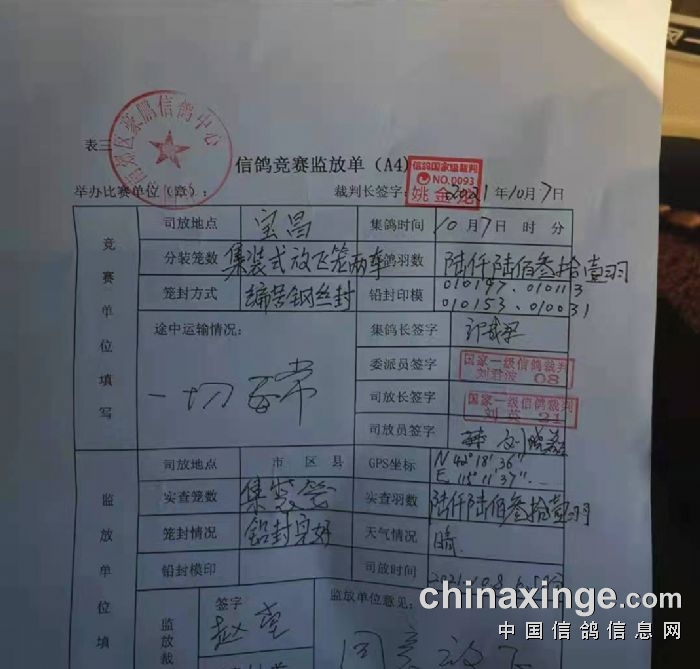 表三
信鸽竞赛监放单（A4）
信鸽国家级裁判
NO.0093
姚金
举办比赛单位（章）： 裁判长签字： 2021年10月7日
竞赛单位填写
司放地点 宝昌 集鸽时间 10月7日 时 分
分装笼数 集装式放飞笼两车 鸽羽数 陆仟陆佰叁拾壹羽
笼封方式 钢丝封 铅封印模 010197、010113
010153、010031
途中运输情况： 一切正常
集鸽长签字
委派员签字 国家一级信鸽裁判
08
司放长签字 国家一级信鸽裁判
31
司放员签字
监放单位填
司放地点 市 区 县 GPS坐标 N 42°18′36″
E 115°11′37″
实查笼数 集装笼 实查羽数 陆仟陆佰叁拾壹羽
笼封情况 铅封完好 天气情况 晴
铅封模印 司放时间 2021.10.8
监放裁
签字 赵 监放单位意见：
同意放飞
chinaxinge.com
中国信鸽信息网